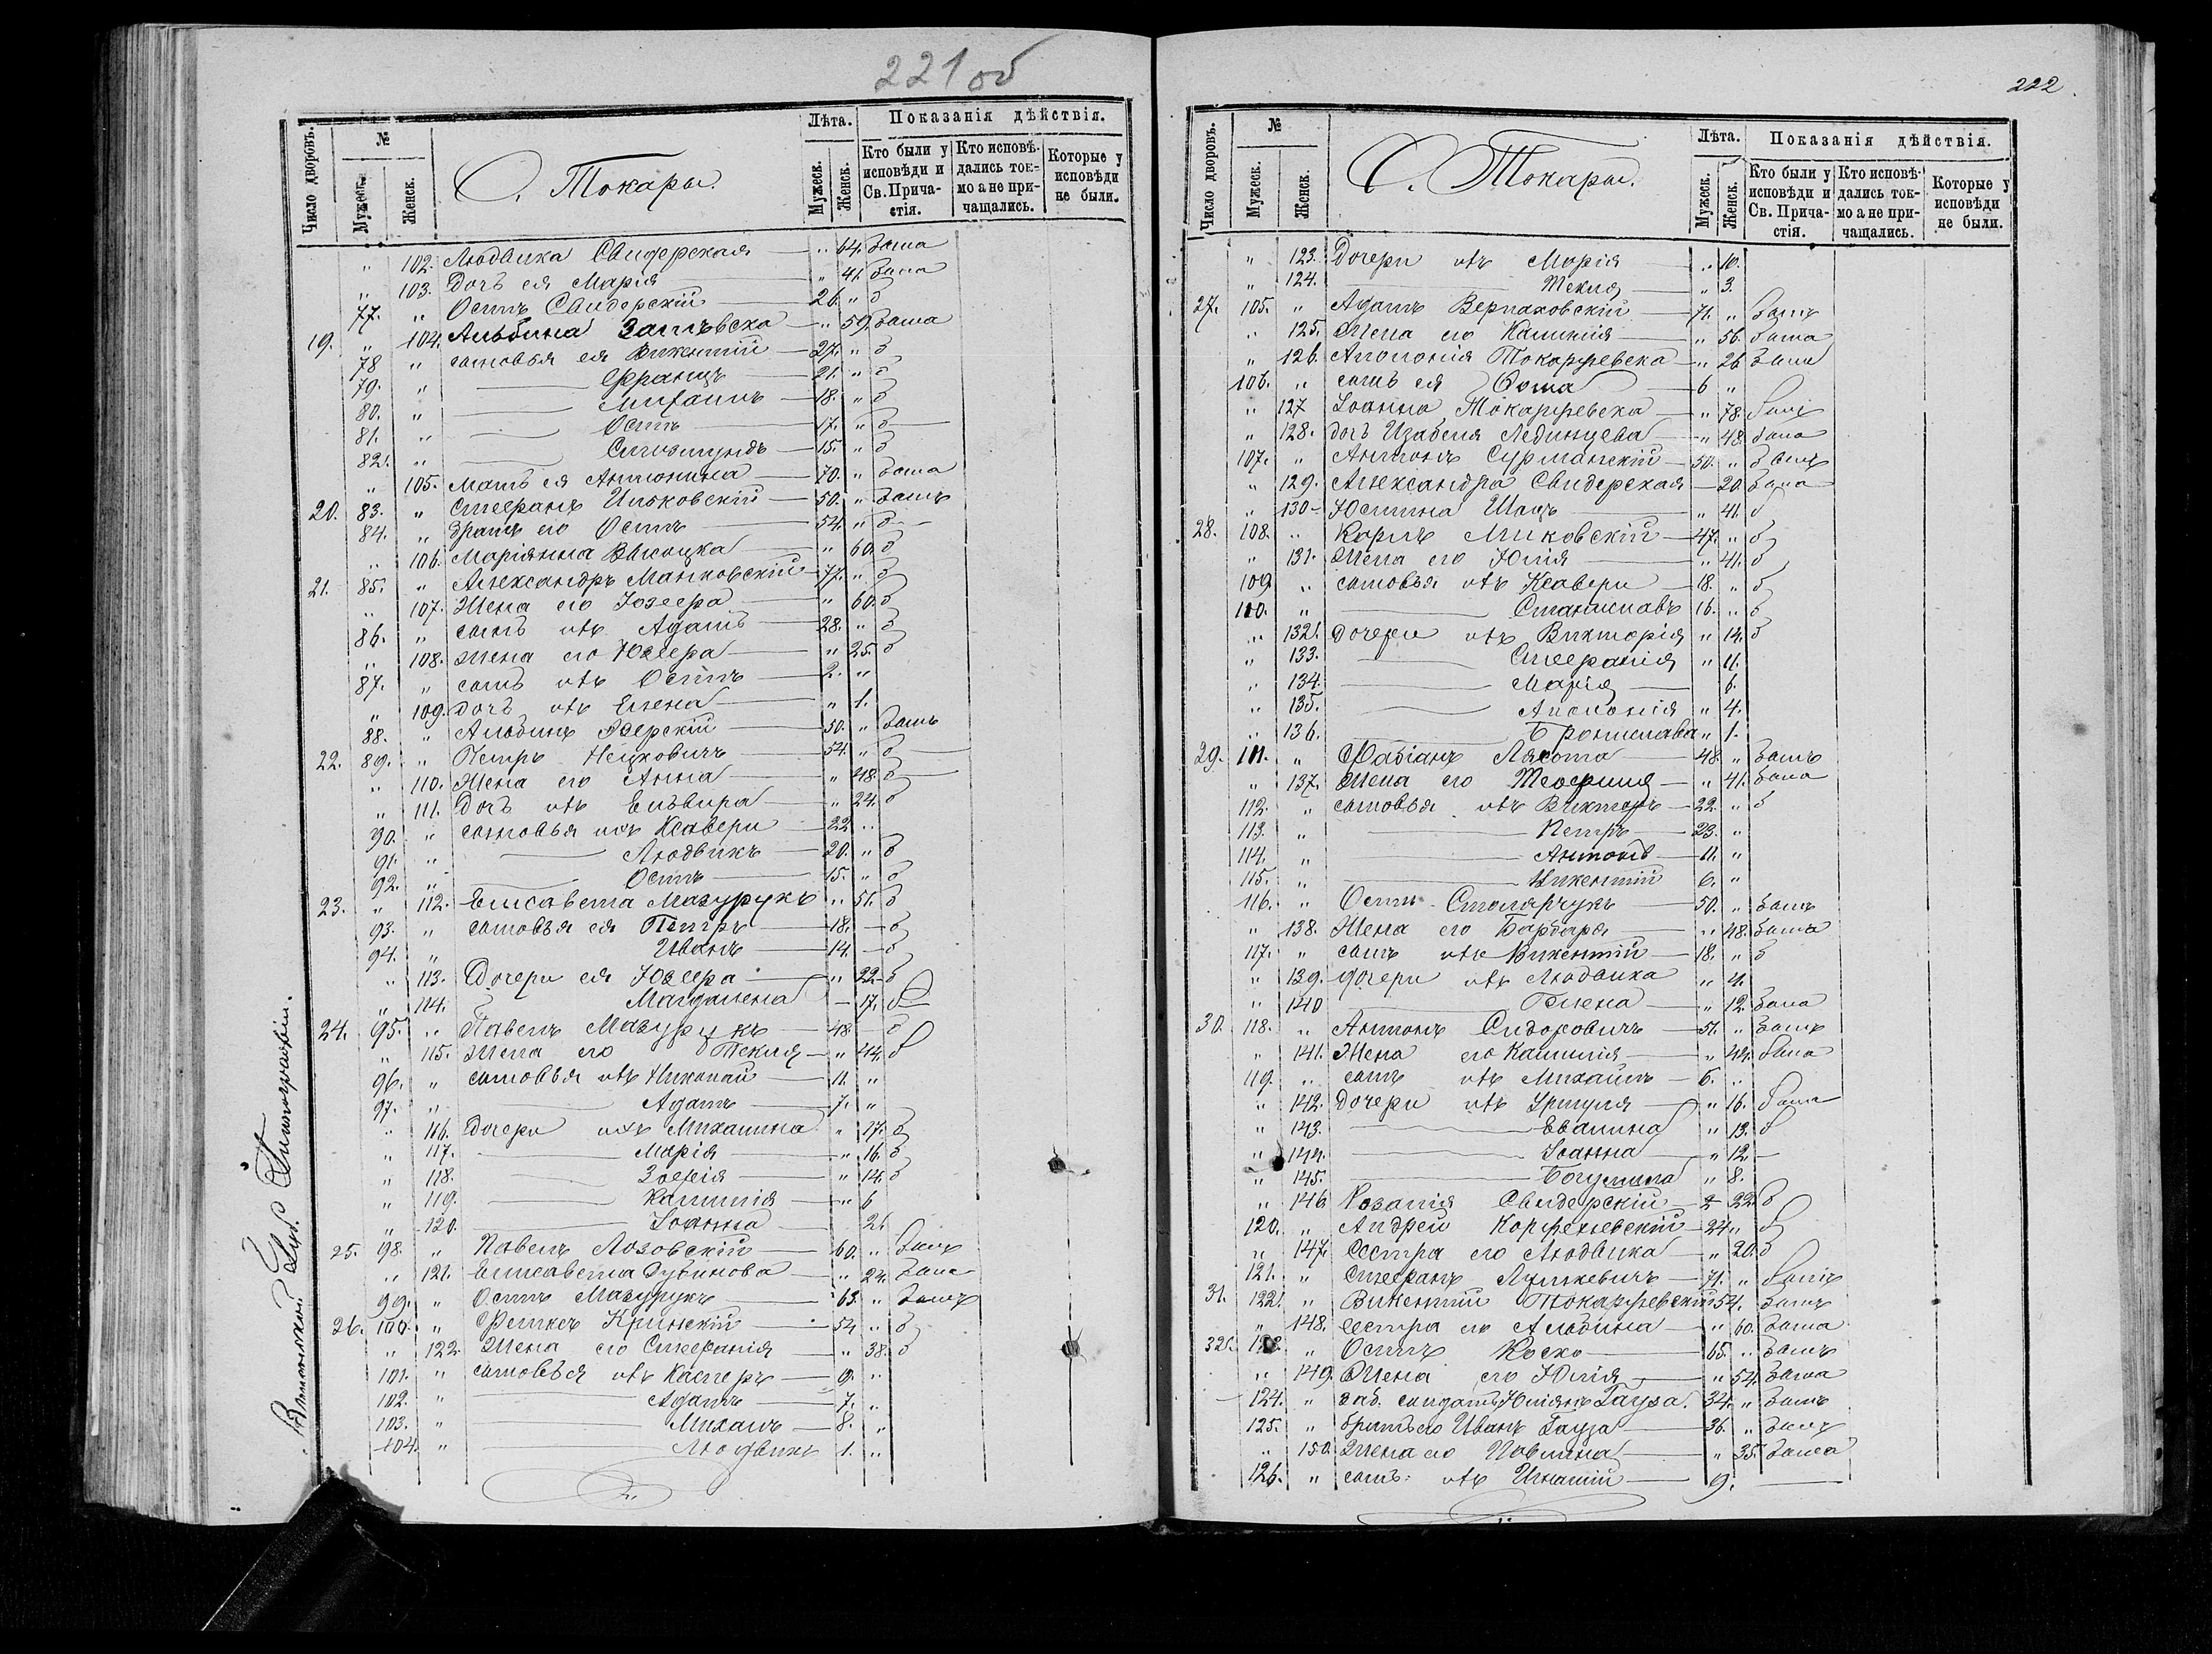 221 об
Число дворовъ. № Мужеск. Женск. С. Токары. Лѣта. Мужеск. Женск. Показанія дѣйствія. Кто были у исповѣди и Св. Причастія. Кто исповѣдались токмо а не причащались. Которые у исповѣди не были.
" 102. Людвика Свидерская — " 64. была
" 103. Дочь ея Марія " 41. была
77. " Осипъ Свидерскій — 26. " б
19. " 104. Альбина — " 59. была
78 " сыновья ея Викентій — 27. " б
79. " — Францъ — 21. " б
80. " — Михаилъ — 18. " б
81. " — Осипъ — 17. " б
82. " — Сигизмундъ — 15. " б
" 105. Мать ея Антонина — 70. " была
20. 83. " Стефанъ Ильковскій — 50. " былъ
84. " братъ его Осипъ — 54. " б
" 106. Маріянна Высоцка — " 60. б
21. 85. " Александръ Манковскій — 77. " б
" 107. Жена его Юзефа — " 60. б
86. " сынъ ихъ Адамъ — 28. " б
" 108. жена его Юзефа — " 25. б
87. " сынъ ихъ Осипъ — 2. "
" 109. дочь ихъ Елена — " 1.
88. " Альбинъ — 50. " былъ
22. 89. " Петръ — 54. " б
" 110. Жена его Анна — " 48. б
" 111. Дочь ихъ Ельвира — " 24. б
90. " сыновья ихъ Ксавери — 22 "
91. " — Людвикъ — 20. " б
92. " — Осипъ — 15. " б
23. " 112. Елисавета Мазурукъ " 51. б
93. " сыновья ея Петръ — 18. — б
94. " Иванъ — 14. — б
" 113. Дочери ея Юзефа — " 22 — б
" 114. Магдалена — 17. б
24. 95. " Павелъ Мазурукъ — 48 — б
" 115. жена его Текля — " 44. б
96. " сыновья ихъ Николай — 11. "
97. " — Адамъ — 7. "
" 116. Дочери ихъ Михалина " 17. б
" 117. — Марія — " 16. б
" 118. — Зофія — " 14. б
" 119. — Камилія — " 6
" 120. — Іоанна — 2.
25. 98. " Павелъ Лозовскій — 60. " былъ
" 121. Елисавета — " 24. была
99. " Осипъ Мазурукъ — 63. " былъ
26. 100. " Феликсъ Крынскій — 54 " б
" 122. Жена его Стефанія — " 38. б
101. " сыновья ихъ Касперъ — 9. "
102. " — Адамъ — 7. "
103. " — Михаилъ — 8. "
104. " — Людвикъ 1. "
222.
Число дворовъ. № Мужеск. Женск. С. Токары. Лѣта. Мужеск. Женск. Показанія дѣйствія. Кто были у исповѣди и Св. Причастія. Кто исповѣдались токмо а не причащались. Которые у исповѣди не были.
" 123. Дочери ихъ Марія " 10.
" 124. — Текля — " 3.
27. 105. " Адамъ Верпаховскій — 71. " былъ
" 125. Жена его Камилія — " 56. была
" 126. Аполонія Токаржевска — " 26 была
106. " сынъ ея Фома — 6 "
" 127 Іоанна Токаржевска — " 78.
" 128. дочь Изабеля — " 48. была
107. " Антонъ Сурманскій — 50. " былъ
" 129. Александра Свидерская — 20. была
" 130 — Юстина — " 41. б
28. 108. " Карлъ — 47. " б
" 131. Жена его Юлія — " 41. б
109 " сыновья ихъ Ксавери — 18. " б
110. " — Станиславъ 16. " б
" 132. Дочери ихъ Викторія " 14. б
" 133. — Стефанія " 11.
" 134. — Марія — 6.
" 135. — Аполонія " 4.
" 136. — Брониславa " 1.
29. 111. " Фабіанъ Лясота — 48. " былъ
" 137. Жена его Теофиля — " 41. была
112. " сыновья ихъ Викторъ — 22. " б
113. " — Петръ — 23. "
114. " — Антонъ — 11. "
115. " — Викентій 6. "
116. " Осипъ Столярчукъ — 50. " былъ
" 138. Жена его Барбара — " 48. была
117. " сынъ ихъ Викентій — 18. " б
" 139. дочери ихъ Людвика " 4.
" 140 — Гелена — " 12. была
30. 118. " Антонъ Сидоровичъ — 51. " былъ
" 141. Жена его Камилія — " 44. была
119. " сынъ ихъ Михаилъ — 6. "
" 142. Дочери ихъ Уршуля — " 16. была
" 143. — Евалина " 13. б
" 144. — Іоанна — " 12. —
" 145. — Богумила " 8.
" 146 Розалія Свидерскій — 22. б
120. " Андрей Корженевскій — 24 " б
" 147. сестра его Людвика — " 20. б
121. " Стефанъ — 71. " былъ
31. 122. " Викентій Токаржевскій 54. былъ
" 148. сестра его Альбина — " 60. была
32. 123. " Осипъ Коско — 65. " былъ
" 149. Жена его Юлія — " 54. была
124. " солдатъ Юліянъ Гауза. 34. " былъ
125. " братъ его Иванъ Гауза — 36. " былъ
" 150. Жена его Павлина — " 35. была
126. " сынъ ихъ Игнатій — 9. —